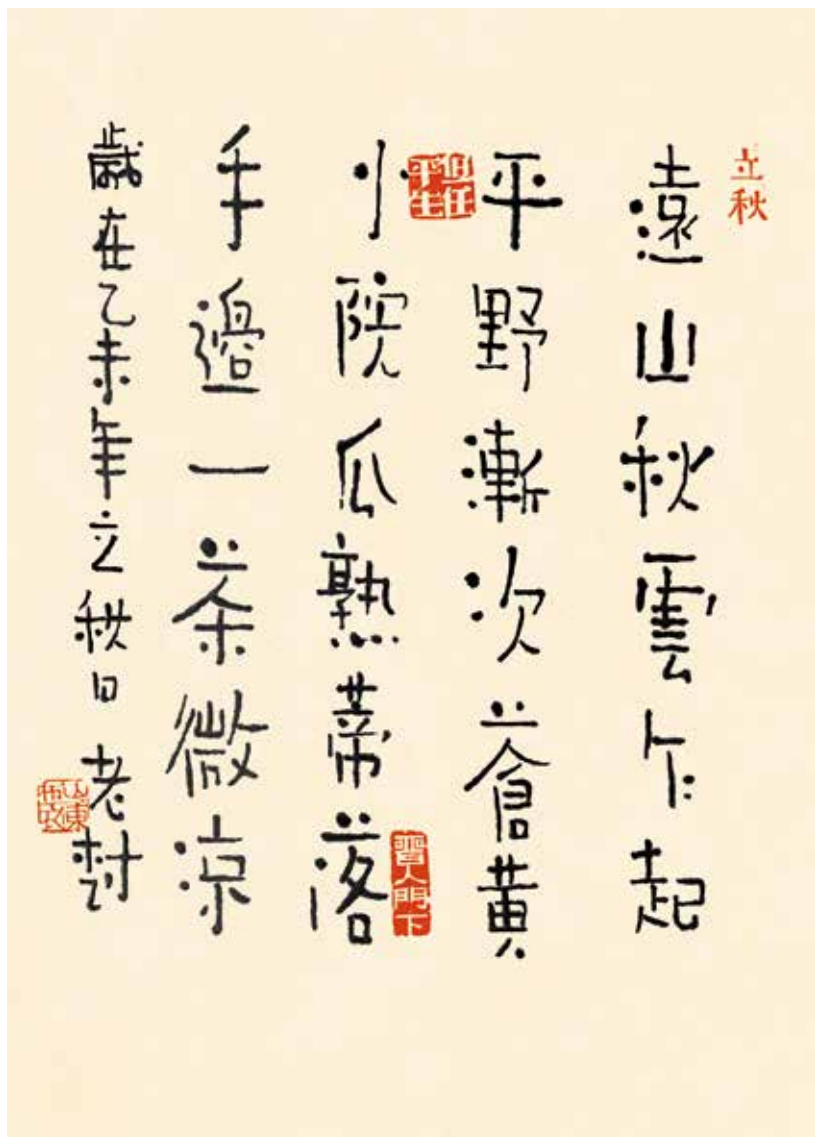 立秋
遠山秋雲乍起
平野漸次蒼黃
小院瓜熟蒂落
手邊一茶微涼
歲在乙未年立秋日 老村